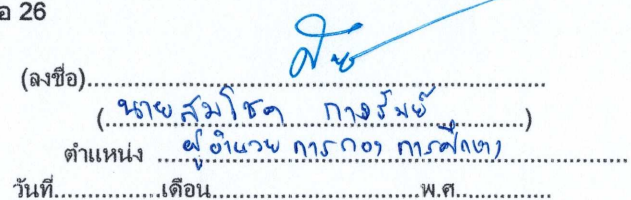 อ 26
(ลงชื่อ)
(นายสมโชค กางรัมย์)
ตำแหน่ง ผู้อำนวยการกองการศึกษา
วันที่..............เดือน...........................พ.ศ................